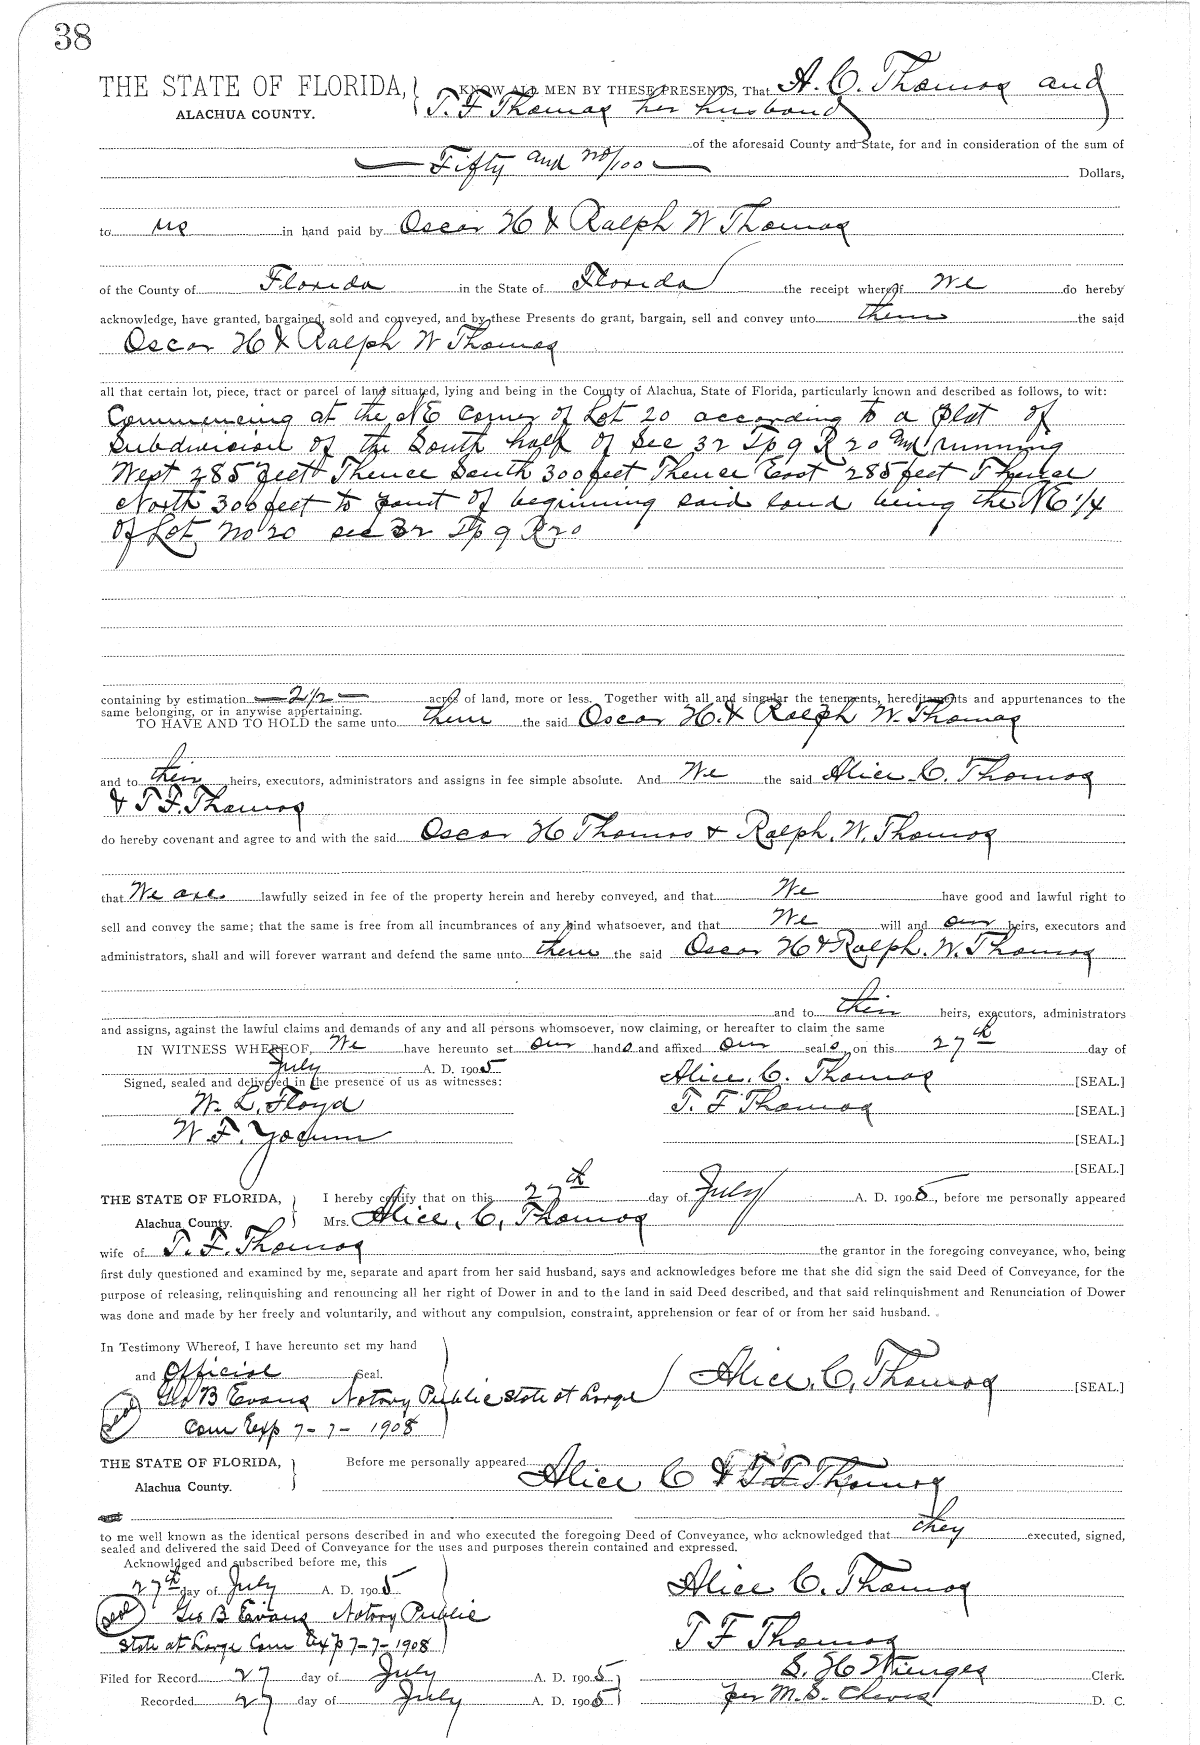 38
THE STATE OF FLORIDA, KNOW ALL MEN BY THESE PRESENTS, That A. C. Thomas and
ALACHUA COUNTY. T. F Thomas her husband
of the aforesaid County and State, for and in consideration of the sum of
Fifty and no/100 Dollars,
to us in hand paid by Oscar H & Ralph W Thomas
of the County of Florida in the State of Florida the receipt whereof We do hereby
acknowledge, have granted, bargained, sold and conveyed, and by these Presents do grant, bargain, sell and convey unto them the said
Oscar H & Ralph W Thomas
all that certain lot, piece, tract or parcel of land situated, lying and being in the County of Alachua, State of Florida, particularly known and described as follows, to wit:
Commencing at the NE Corner of Lot 20 according to a plat of
Subdivision of the South half of Sec 32 Tp 9 R 20 and running
West 285 feet Thence South 300 feet Thence East 285 feet Thence
North 300 feet to point of beginning said land being the NE 1/4
Of Lot No 20 sec 32 Tp 9 R 20
containing by estimation — 2 1/2 — acres of land, more or less. Together with all and singular the tenements, hereditaments and appurtenances to the
same belonging, or in anywise appertaining.
TO HAVE AND TO HOLD the same unto them the said Oscar H. & Ralph W. Thomas
and to their heirs, executors, administrators and assigns in fee simple absolute. And We the said Alice. C. Thomas
& T. F. Thomas
do hereby covenant and agree to and with the said Oscar H Thomas & Ralph. W. Thomas
that We are lawfully seized in fee of the property herein and hereby conveyed, and that We have good and lawful right to
sell and convey the same; that the same is free from all incumbrances of any kind whatsoever, and that We will and our heirs, executors and
administrators, shall and will forever warrant and defend the same unto them the said Oscar H & Ralph. W. Thomas
and to their heirs, executors, administrators
and assigns, against the lawful claims and demands of any and all persons whomsoever, now claiming, or hereafter to claim the same
IN WITNESS WHEREOF, We have hereunto set our hands and affixed our seals, on this 27th day of
July A. D. 1905
Signed, sealed and delivered in the presence of us as witnesses: Alice. C. Thomas [SEAL.]
W. L. Floyd T. F Thomas [SEAL.]
W. F. Yocum [SEAL.]
[SEAL.]
THE STATE OF FLORIDA, I hereby certify that on this 27th day of July A. D. 1905, before me personally appeared
Alachua County. Mrs. Alice. C. Thomas
wife of T. F. Thomas the grantor in the foregoing conveyance, who, being
first duly questioned and examined by me, separate and apart from her said husband, says and acknowledges before me that she did sign the said Deed of Conveyance, for the
purpose of releasing, relinquishing and renouncing all her right of Dower in and to the land in said Deed described, and that said relinquishment and Renunciation of Dower
was done and made by her freely and voluntarily, and without any compulsion, constraint, apprehension or fear of or from her said husband.
In Testimony Whereof, I have hereunto set my hand
and Official Seal. Alice. C. Thomas [SEAL.]
Seal Geo B Evans Notary Public state at Large
Com Exp 7-7-1908
THE STATE OF FLORIDA, Before me personally appeared Alice C & T F Thomas
Alachua County.
to me well known as the identical persons described in and who executed the foregoing Deed of Conveyance, who acknowledged that they executed, signed,
sealed and delivered the said Deed of Conveyance for the uses and purposes therein contained and expressed.
Acknowldged and subscribed before me, this
27th day of July A. D. 1905 Alice C. Thomas
Seal Geo B Evans Notary Public
State at Large Com Exp 7-7-1908 T F Thomas
Filed for Record 27 day of July A. D. 1905 S. H Wienges Clerk.
Recorded 27 day of July A. D. 1905 per M. S. Cheves D. C.